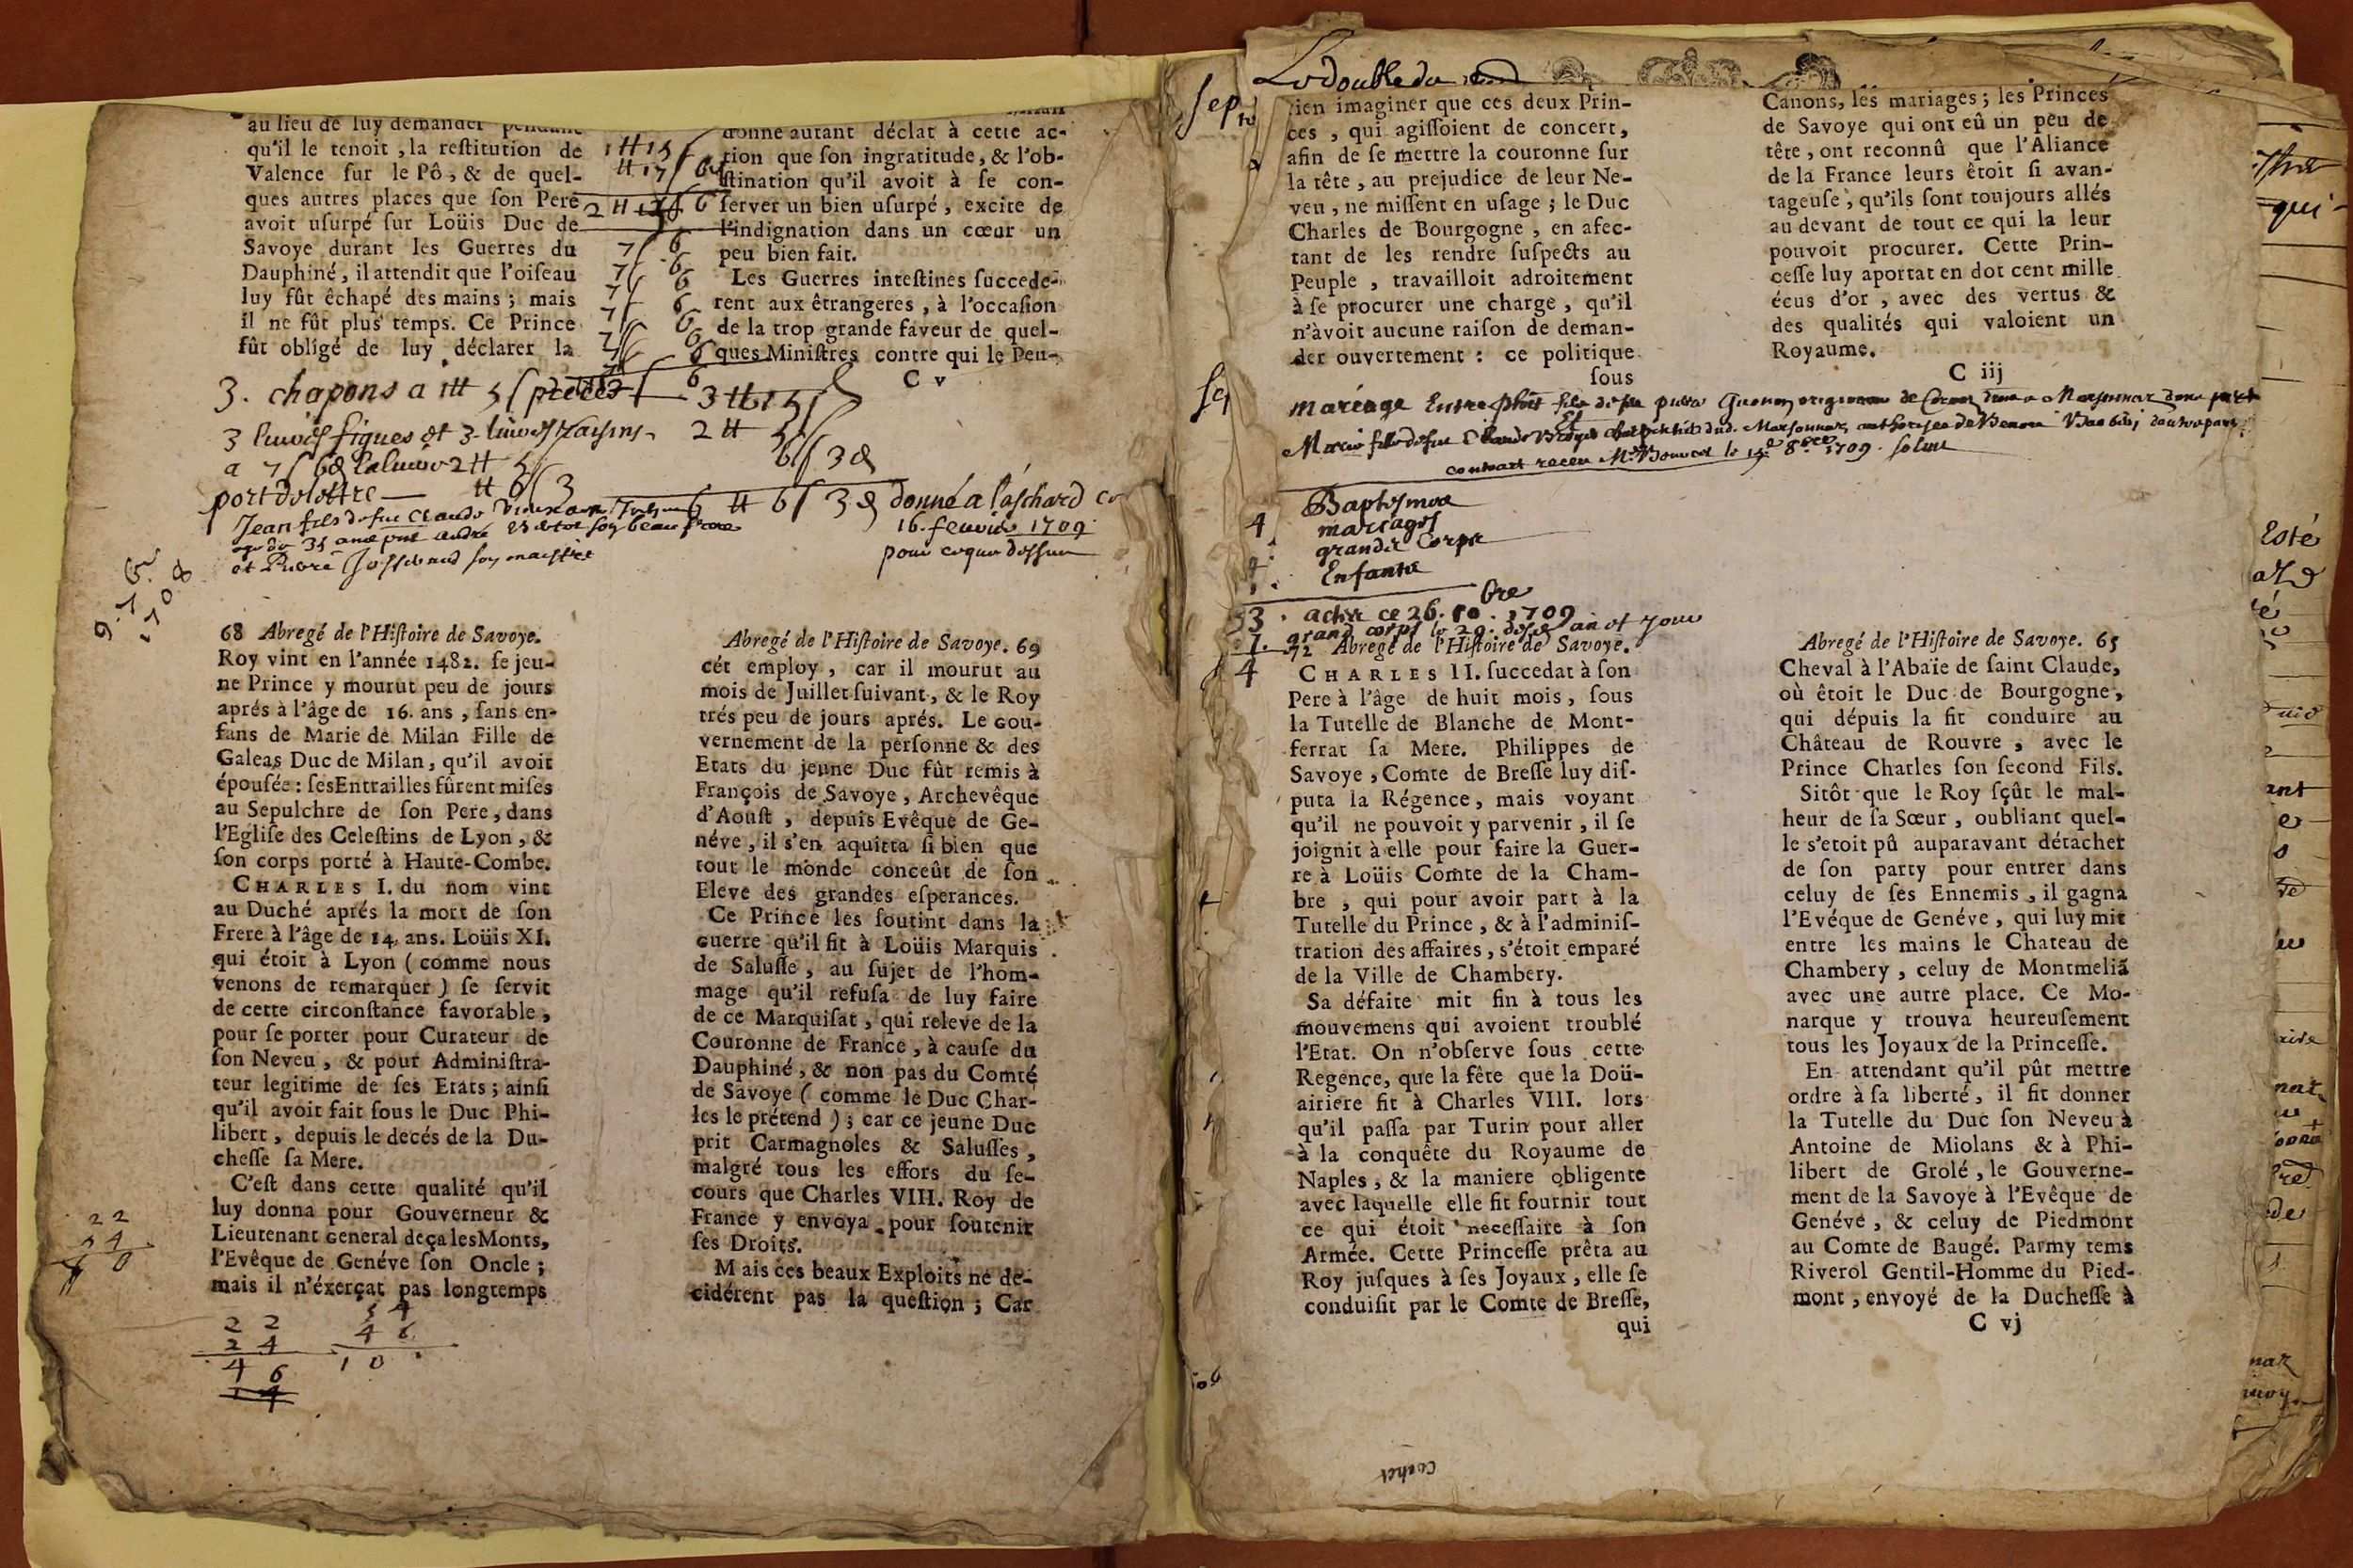 au lieu de luy demander
qu'il le tenoit, la reſtitution de
Valence ſur le Pô, & de quel-
ques autres places que ſon Pere
avoit uſurpé ſur Loüis Duc de
Savoye durant les Guerres du
Dauphiné, il attendit que l'oiſeau
luy fût êchapé des mains; mais
il ne fût plus temps. Ce Prince
fût obligé de luy déclarer la
donne autant déclat à cette ac-
tion que ſon ingratitude, & l'ob-
ſtination qu'il avoit à ſe con-
ſerver un bien uſurpé, excite de
l'indignation dans un cœur un
peu bien fait.
Les Guerres inteſtines ſuccede-
rent aux êtrangeres, à l'occaſion
de la trop grande faveur de quel-
ques Miniſtres contre qui le Peu-
C v
3. chapons a
3 figues et 3
port
donné a
16. 1709
pour
Jean fils de feu Claude
et
1708
68 Abregé de l'Hiſtoire de Savoye.
Roy vint en l'année 1482. ſe jeu-
ne Prince y mourut peu de jours
aprés à l'âge de 16. ans, ſans en-
fans de Marie de Milan Fille de
Galeas Duc de Milan, qu'il avoit
épouſée: ſes Entrailles fûrent miſes
au Sepulchre de ſon Pere, dans
l'Egliſe des Celeſtins de Lyon, &
ſon corps porté à Haute-Combe.
CHARLES I. du nom vint
au Duché aprés la mort de ſon
Frere à l'âge de 14. ans. Loüis XI.
qui étoit à Lyon ( comme nous
venons de remarquer ) ſe ſervit
de cette circonſtance favorable,
pour ſe porter pour Curateur de
ſon Neveu, & pour Adminiſtra-
teur legitime de ſes Etats; ainſi
qu'il avoit fait ſous le Duc Phi-
libert, depuis le decés de la Du-
cheſſe ſa Mere.
C'eſt dans cette qualité qu'il
luy donna pour Gouverneur &
Lieutenant General deça les Monts,
l'Evêque de Genéve ſon Oncle;
mais il n'éxerçat pas longtemps
22
24
46
Abregé de l'Hiſtoire de Savoye. 69
cét employ, car il mourut au
mois de Juillet ſuivant, & le Roy
trés peu de jours aprés. Le Gou-
vernement de la perſonne & des
Etats du jeune Duc fût remis à
François de Savoye, Archevêque
d'Aouſt, depuis Evêque de Ge-
néve, il s'en aquitta ſi bien que
tout le monde conceût de ſon
Eleve des grandes eſperances.
Ce Prince les ſoutint dans la
Guerre qu'il fit à Loüis Marquis
de Saluſſe, au ſujet de l'hom-
mage qu'il refuſa de luy faire
de ce Marquiſat, qui releve de la
Couronne de France, à cauſe du
Dauphiné, & non pas du Comté
de Savoye ( comme le Duc Char-
les le prétend ); car ce jeune Duc
prit Carmagnoles & Saluſſes,
malgré tous les effors du ſe-
cours que Charles VIII. Roy de
France y envoya pour ſoutenir
ſes Droits.
Mais ces beaux Exploits ne dé-
cidérent pas la queſtion; Car
rien imaginer que ces deux Prin-
ces, qui agiſſoient de concert,
afin de ſe mettre la couronne ſur
la tête, au prejudice de leur Ne-
veu, ne miſſent en uſage; le Duc
Charles de Bourgogne, en afec-
tant de les rendre ſuſpects au
Peuple, travailloit adroitement
à ſe procurer une charge, qu'il
n'àvoit aucune raiſon de deman-
der ouvertement: ce politique
ſous
Canons, les mariages; les Princes
de Savoye qui ont eû un peu de
tête, ont reconnû que l'Aliance
de la France leurs êtoit ſi avan-
tageuſe, qu'ils ſont toujours allés
au devant de tout ce qui la leur
pouvoit procurer. Cette Prin-
ceſſe luy aportat en dot cent mille
écus d'or, avec des vertus &
des qualités qui valoient un
Royaume.
C iij
mariage Entre
contract receu 1709
4 Baptesmes
mariages
grands Corps
Enfants
ce 26. 1709
72 Abregé de l'Hiſtoire de Savoye.
4
CHARLES II. ſuccedat à ſon
Pere à l'âge de huit mois, ſous
la Tutelle de Blanche de Mont-
ferrat ſa Mere. Philippes de
Savoye, Comte de Breſſe luy diſ-
puta la Régence, mais voyant
qu'il ne pouvoit y parvenir, il ſe
joignit à elle pour faire la Guer-
re à Loüis Comte de la Cham-
bre, qui pour avoir part à la
Tutelle du Prince, & à l'adminiſ-
tration des affaires, s'étoit emparé
de la Ville de Chambery.
Sa défaite mit fin à tous les
mouvemens qui avoient troublé
l'Etat. On n'obſerve ſous cette
Regence, que la fête que la Doü-
airiere fit à Charles VIII. lors
qu'il paſſa par Turin pour aller
à la conquête du Royaume de
Naples, & la maniere obligente
avec laquelle elle fit fournir tout
ce qui étoit neceſſaire à ſon
Armée. Cette Princeſſe prêta au
Roy juſques à ſes Joyaux, elle ſe
conduiſit par le Comte de Breſſe,
qui
Abregé de l'Hiſtoire de Savoye. 65
Cheval à l'Abaïe de ſaint Claude,
où êtoit le Duc de Bourgogne,
qui dépuis la fit conduire au
Château de Rouvre, avec le
Prince Charles ſon ſecond Fils.
Sitôt que le Roy ſçût le mal-
heur de ſa Sœur, oubliant quel-
le s'etoit pû auparavant détacher
de ſon party pour entrer dans
celuy de ſes Ennemis, il gagna
l'Evéque de Genéve, qui luy mit
entre les mains le Chateau de
Chambery, celuy de Montmeliã
avec une autre place. Ce Mo-
narque y trouva heureuſement
tous les Joyaux de la Princeſſe.
En attendant qu'il pût mettre
ordre à ſa liberté, il fit donner
la Tutelle du Duc ſon Neveu à
Antoine de Miolans & à Phi-
libert de Grolé, le Gouverne-
ment de la Savoye à l'Evêque de
Genéve, & celuy de Piedmont
au Comte de Baugé. Parmy tems
Riverol Gentil-Homme du Pied-
mont, envoyé de la Ducheſſe à
C vj